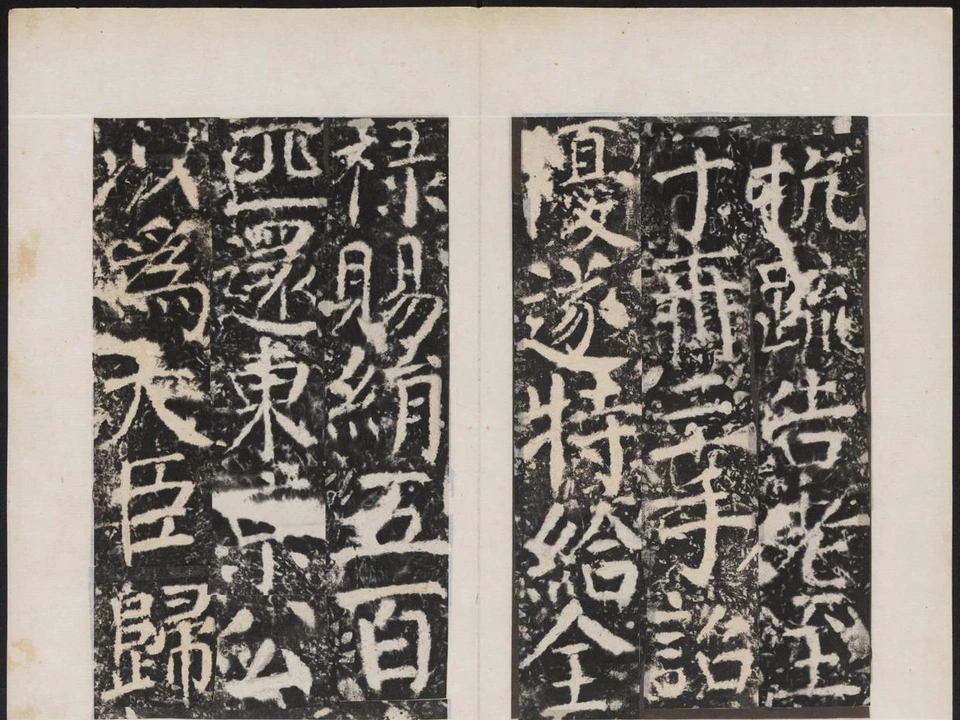 抗疏告老至
于再三手詔
優遂特給全
祿賜絹五百
匹還東京公
以為大臣歸